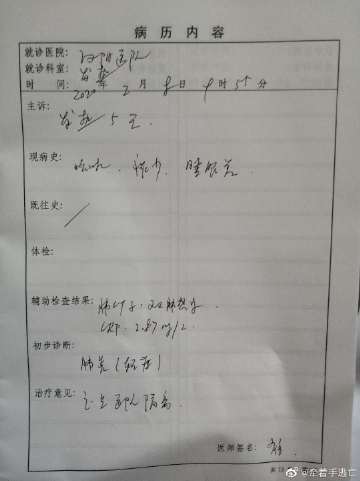 病历内容
就诊医院：汉阳医院
就诊科室：发热
时 间：2020年 2 月 8 日 9 时 55 分
主诉：
发热 5 天.
现病史：
咳嗽、
既往史：
/
体检：
辅助检查结果：肺CT示：双肺感染
CRP：2.87mg/L
初步诊断：
肺炎（轻症）
治疗意见：
医师签名：
@牵着手逃亡